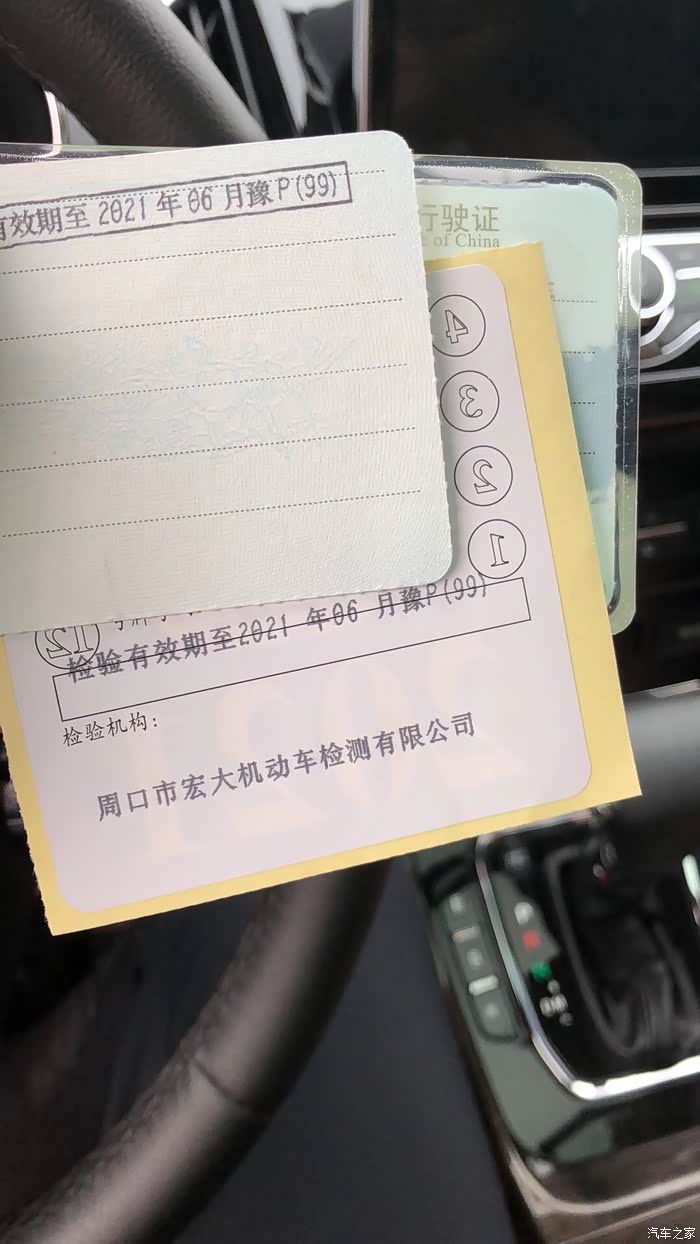 有效期至 2021 年 06 月豫P(99)
行驶证
of China
4
3
2
1
12
检验有效期至2021 年06 月豫P(99)
检验机构：
周口市宏大机动车检测有限公司
2021
汽车之家